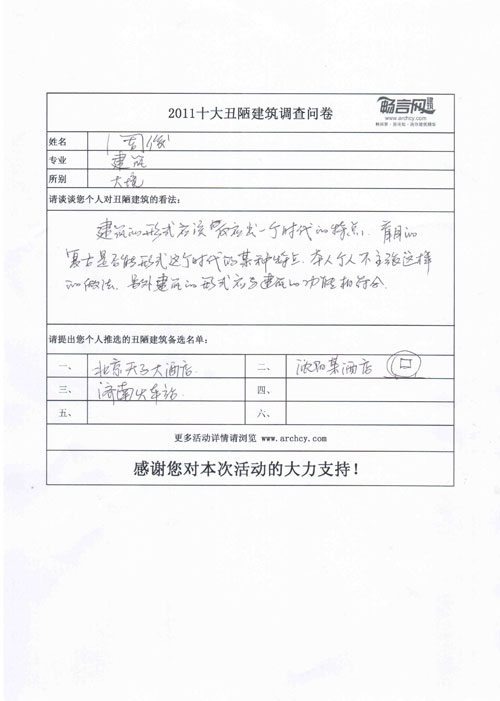 畅言网
www.archcy.com
2011十大丑陋建筑调查问卷
姓名 周俊
专业 建筑
所别 大境
请谈谈您个人对丑陋建筑的看法：
建筑的形式应该反应出一个时代的特点，盲目的
复古是否能形式这个时代的某种特点，本人个人不主张这样
的做法，另外建筑的形式应与建筑的功能相符合
请提出您个人推选的丑陋建筑备选名单：
一、 北京天子大酒店 二、 沈阳某酒店
三、 济南火车站 四、
五、 六、
更多活动详情请浏览 www.archcy.com
感谢您对本次活动的大力支持！